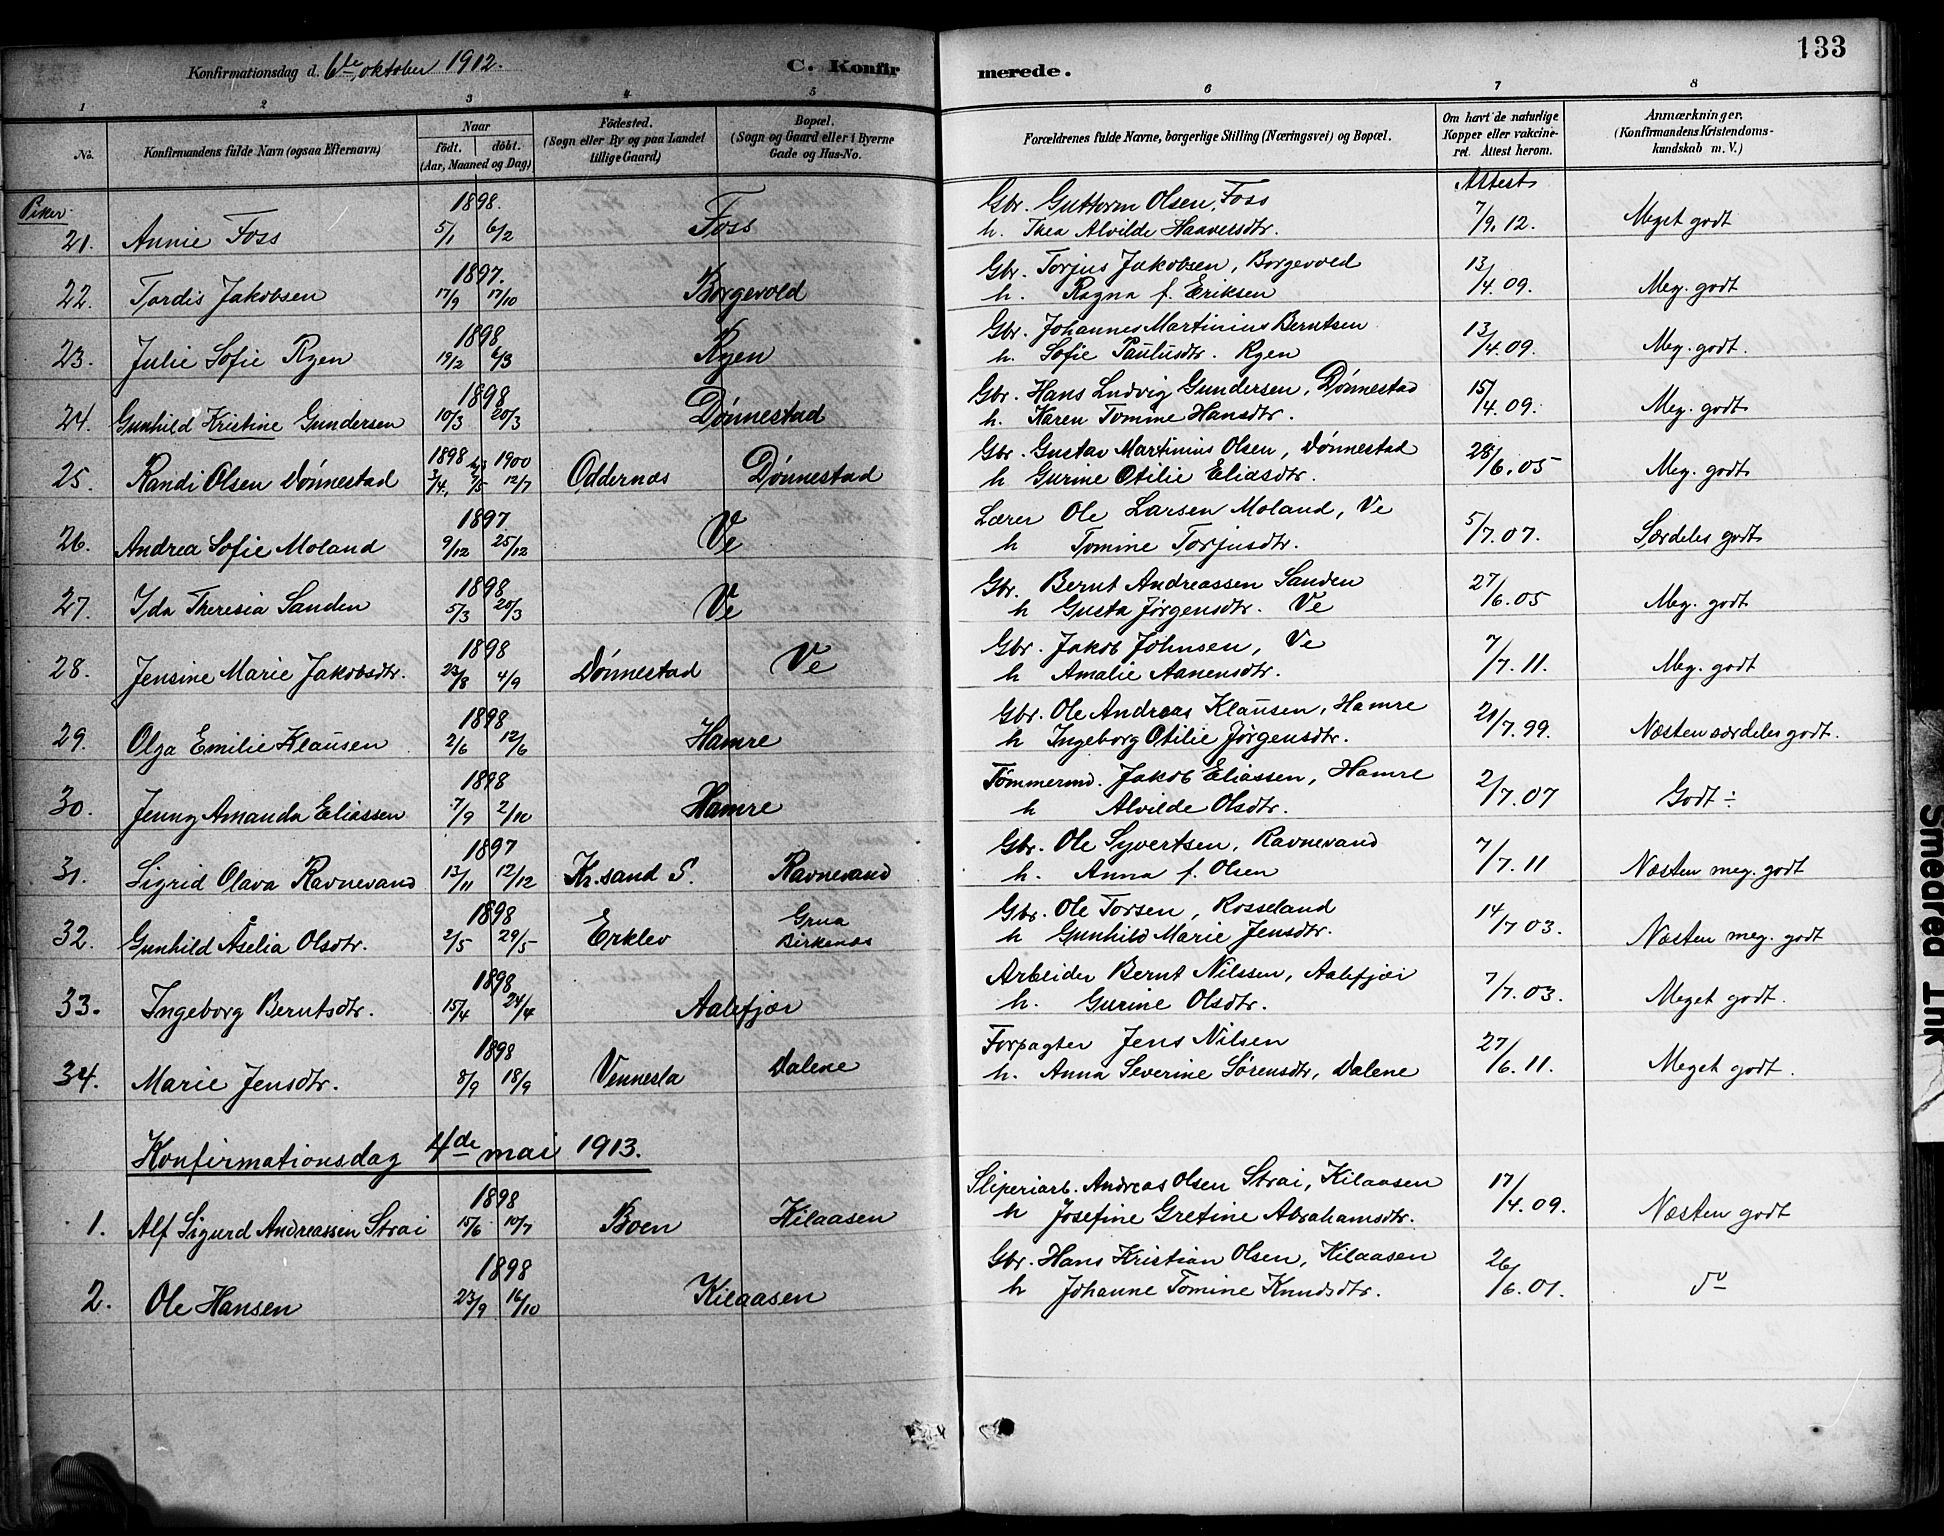 Konfirmationsdag d. 6te oktober 1912. C. Konfirmerede. 133
1 2 3 4 5 6 7 8
No. Konfirmandens fulde Navn (ogsaa Efternavn) Naar født. døbt. (Aar, Maaned og Dag) Fødested. (Sogn eller By og paa Landet tillige Gaard) Bopæl. (Sogn og Gaard eller i Byerne Gade og Hus-No. Forældrenes fulde Navne, borgerlige Stilling (Næringsvei) og Bopæl. Om havt de naturlige Kopper eller vakcineret. Attest herom. Anmærkninger. (Konfirmandens Kristendomskundskab m. V.)
Piker. 1898. Gbr. Guttorm Olsen, Foss Attest
21. Annie Foss 5/1 6/2 Foss h. Thea Alvilde Haaversdtr. 7/9.12. Meget godt
1897. Gbr. Torjus Jakobsen, Borgevold
22. Tordis Jakobsen 17/9 17/10 Borgevold h. Ragna f. Eriksen 13/4.09. Meg. godt
1898 Gbr. Johannes Martinius Berntsen
23. Julie Sofie Ryen 19/2 6/3 Ryen h. Sofie Paulusdtr. Ryen 13/4.09. Meg. godt.
1898 Gbr. Hans Ludvig Gundersen, Dønnestad
24. Gunhild Kristine Gundersen 10/3 20/3 Dønnestad h. Karen Tomine Hansdtr. 15/4.09. Meg. godt
1898 1900 Gbr. Gustav Martinius Olsen, Dønnestad
25. Randi Olsen Dønnestad 3/4. 7/5 12/7 Oddernæs Dønnestad h Gurine Otilie Eliasdtr. 28/6.05 Meg. godt
1897. Lærer Ole Larsen Moland, Ve
26. Andrea Sofie Moland 9/12 25/12 Ve h Tomine Torjusdtr. 5/7.07. Særdeles godt
1898 Gbr. Bernt Andreassen Sanden
27. Ida Theresia Sanden 5/3 20/3 Ve h Gusta Jørgensdtr. Ve 27/6.05 Meg. godt
1898 Gbr. Jakob Johnsen, Ve
28. Jensine Marie Jakobsdtr. 23/8 4/9 Dønnestad Ve h Amalie Aanensdtr. 7/7.11. Meg. godt
1898 Gbr. Ole Andreas Klausen, Hamre
29. Olga Emilie Klausen 2/6 12/6 Hamre h Ingeborg Otilie Jørgensdtr. 21/7.99. Næsten særdeles godt.
1898 Tømmermd. Jakob Eliassen, Hamre
30. Jenny Amanda Eliassen 7/9 2/10 Hamre h Alvilde Olsdtr. 2/7.07 Godt ÷
1897 Gbr. Ole Syvertsen, Ravnevand
31. Sigrid Olava Ravnevand 13/11 12/12 Kr.sand S. Ravnevand h. Anna f. Olsen 7/7.11 Næsten meg. godt
1898 Grua Gbr. Ole Torsen, Rosseland
32. Gunhild Aselia Olsdtr. 2/5 29/5 Erklev Birkenæs h Gunhild Marie Jensdtr. 14/7 03. Næsten meg. godt
1898 Arbeider Bernt Nilssen, Aalefjær
33. Ingeborg Berntsdtr. 15/4 24/4 Aalefjær h. Gurine Olsdtr. 7/7.03. Meget godt.
1898 Forpagter Jens Nilsen
34. Marie Jensdtr. 8/9 18/9 Vennesla Dalene h. Anna Severine Sørensdtr, Dalene 27/6.11. Meget godt.
Konfirmationsdag 4de mai 1913.
1898 Sliperiarb. Andreas Olsen Strai, Kilaasen
1. Alf Sigurd Andreassen Strai 15/6 10/7 Boen Kilaasen h Josefine Gretine Abrahamsdtr. 17/4.09. Næsten godt
1898 Gbr. Hans Kristian Olsen, Kilaasen
2. Ole Hansen 23/9 16/10 Kilaasen h Johanne Tomine Knudsdtr. 26/6.01. do
Smeared Ink